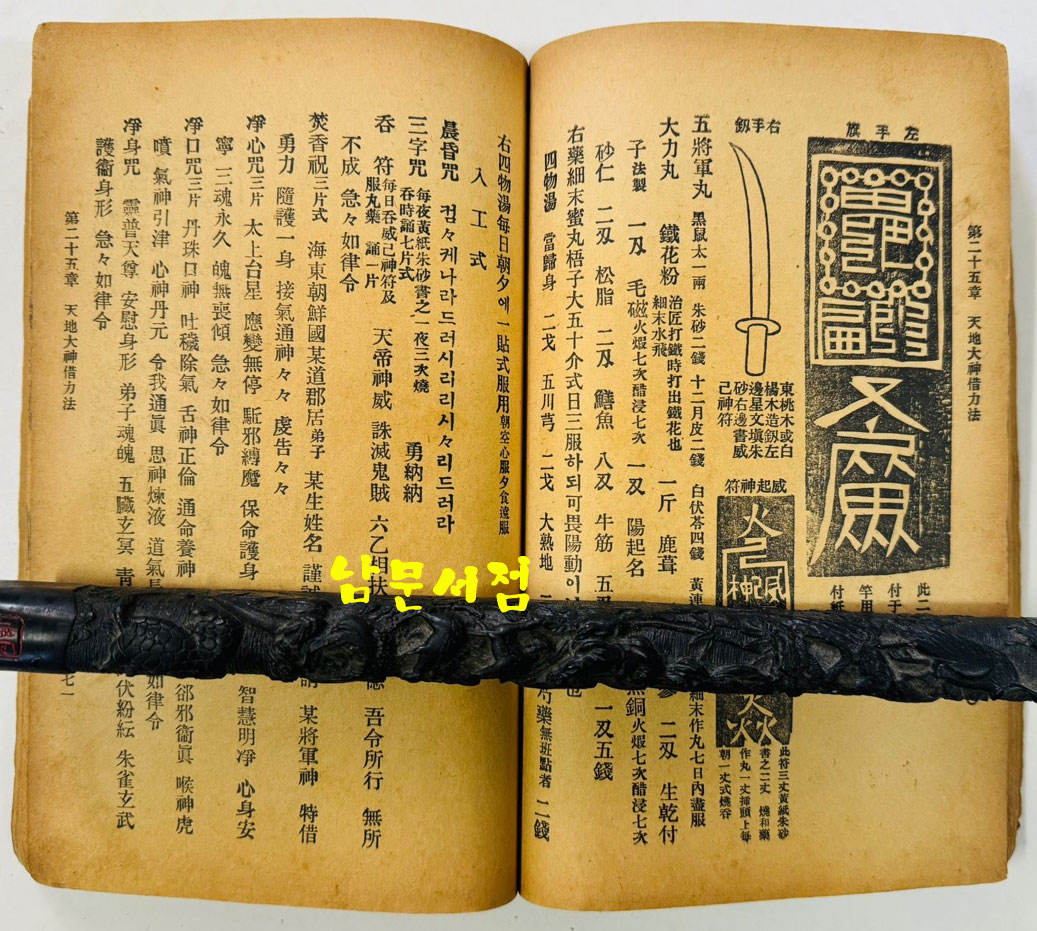 第二十五章 天地大神借力法
左手旗
此二
付于
竿用
付紙
右手劍
東桃木或白
楊木造劍左
邊星文塡朱
砂右邊書威
己神符
威起神符
此符三丈黃紙朱砂
書之二丈 燒和藥
作丸一丈揷頭上每
朝一丈式燒呑
五將軍丸 黑鼠太一兩 朱砂二錢 十二月皮二錢 白伏苓四錢 黃連
細末作丸七日內盡服
大力丸 鐵花粉 治匠打鐵時打出鐵花也 細末水飛 一斤 鹿茸
二刄 生乾付
子法製 一刄 毛磁火煆七次醋浸七次 一刄 陽起名
銅火煆七次醋浸七次
砂仁 二刄 松脂 二刄 鱔魚 八刄 牛筋 五刄
一刄五錢
右藥細末蜜丸梧子大五十介式日三服하되可畏陽動이
也
四物湯 當歸身 二戈 五川芎 二戈 大熟地
芍藥無班點者 二錢
右四物湯每日朝夕에一貼式服用朝空心服夕食遠服
入工式
晨昏咒 컴々케나라드러시리리시々리드러라
三字咒 每夜黃紙朱砂書之一夜三次燒 呑時誦七片式 勇納納
呑 符 每日呑威己神符及 服丸藥 誦一片 天帝神威 誅滅鬼賊 六乙相扶
吾令所行 無所
不成 急々如律令
焚香祝三片式 海東朝鮮國某道郡居弟子 某生姓名 謹誠
某將軍神 特借
勇力 隨護一身 接氣通神々々 虔告々々
淨心咒三片 太上台星 應變無停 駈邪縛魔 保命護身
智慧明淨 心身安
寧 三魂永久 魄無喪傾 急々如律令
淨口咒三片 丹珠口神 吐穢除氣 舌神正倫 通命養神
郤邪衞眞 喉神虎
噴 氣神引津 心神丹元 令我通眞 思神煉液 道氣長
如律令
淨身咒 靈普天尊 安慰身形 弟子魂魄 五臟玄冥 靑
伏紛紜 朱雀玄武
護衞身形 急々如律令
第二十五章 天地大神借力法
七一
남문서점